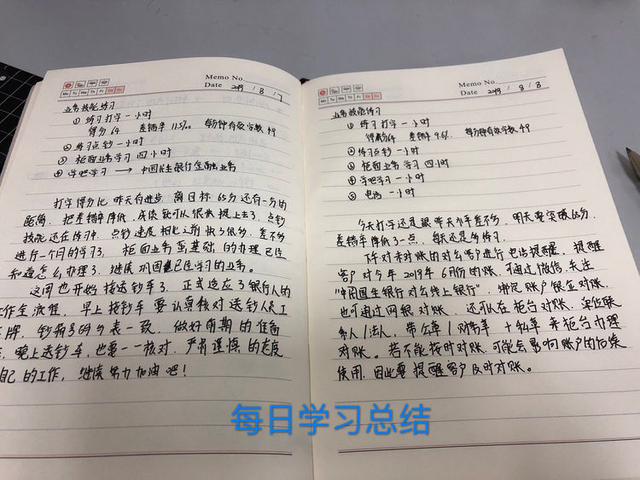 Memo No.
Date 2019 / 8 / 7
Mo Tu We Th Fr Sa Su
业务技能练习
① 练习打字一小时
得分64 差错率11.5% 每分钟有效字数49
② 练习点钞一小时
③ 柜面业务学习 四小时
④ 学吧学习 → 中国民生银行金融业务
打字得分比昨天有进步,离目标65分还有一分的
距离,把差错率降低,成绩就可以很快提上去了,点钞
技能还在练习中,点钞速度相比之前快了很多,差不多
进行一个月的学习,柜面业务基础的办理已经
知道怎么办理了,继续巩固已经学习的业务。
这周也开始接送钞车了,正式适应了银行人的
工作全流程,早上接钞车要认真核对送钞人员工
牌,钞箱号码与表一致,做好前期的准备
晚上送钞车,也要一一核对,严肃谨慎的态度
自己的工作,继续努力加油吧!
Memo No.
Date 2019 / 8 / 8
Mo Tu We Th Fr Sa Su
业务技能练习
① 练习打字一小时
得分64 差错率9.6% 每分钟有效字数49
② 练习点钞一小时
③ 柜面业务学习 四小时
④ 学吧学习 一小时
⑤ 电话 一小时
今天打字还是跟昨天水平差不多,明天要突破65分,
差错率降低3一点,每天还是多练习。
下午对未对账的对公客户进行电话提醒,提醒
客户对今年2019年6月份的账,可通过微信关注
“中国民生银行对公线上银行”,绑定账户银企对账,
也可通过网银对账,还可以在柜台对账,单位联
系人/法人,带公章/财务章+私章来柜台办理
对账。若不能按时对账,可能会影响账户的后续
使用,因此要提醒客户及时对账。
每日学习总结